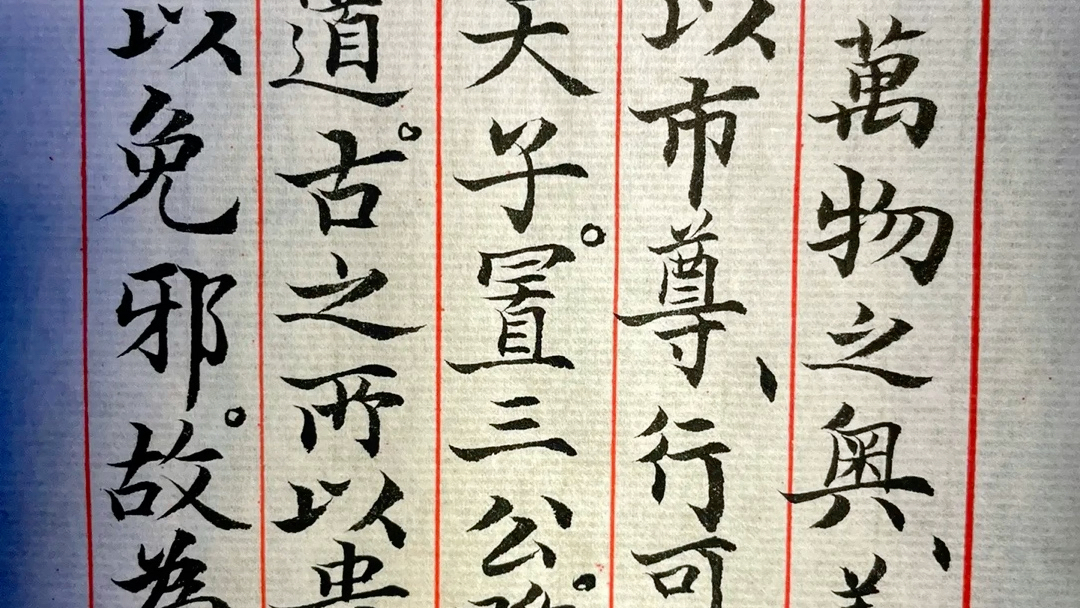 萬物之奧、
以市尊、行可
天子。置三公。
道。古之所以貴
以免邪。故為